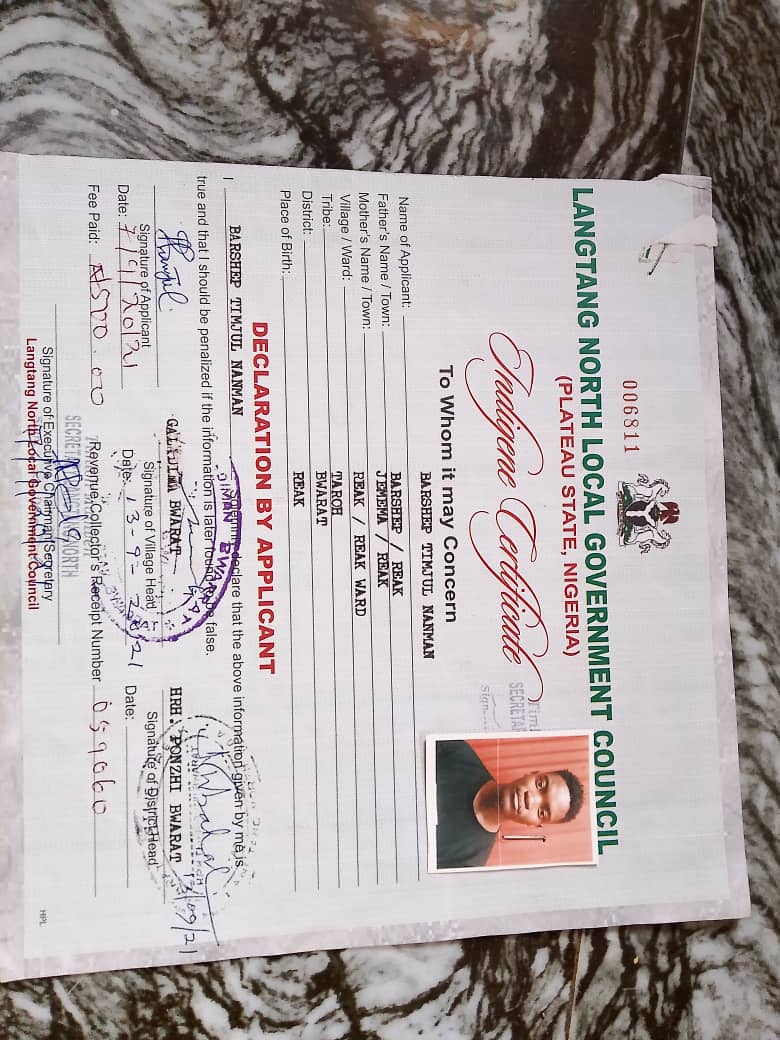 006811
LANGTANG NORTH LOCAL GOVERNMENT COUNCIL
(PLATEAU STATE, NIGERIA)
Indigene Certificate
To Whom it may Concern
Name of Applicant: BARSHEP TIMJUL NANMAN
Father's Name / Town: BARSHEP / REAK
Mother's Name / Town: JEMEMA / REAK
Village / Ward: REAK / REAK WARD
Tribe: TAROH
District: BWARAT
Place of Birth: REAK
DECLARATION BY APPLICANT
I BARSHEP TIMJUL NANMAN declare that the above information given by me is
true and that I should be penalized if the information is later found to be false.
GALADIMA BWARAT HRH. PONZHI BWARAT
Signature of Applicant Signature of Village Head Signature of District Head
Date: 7/9/2021 Date: 13-9-2021 Date: 13/09/21
Fee Paid: ₦500.00 Revenue Collector's Receipt Number 059060
Signature of Executive Chairman/Secretary
Langtang North Local Government Council
HPL